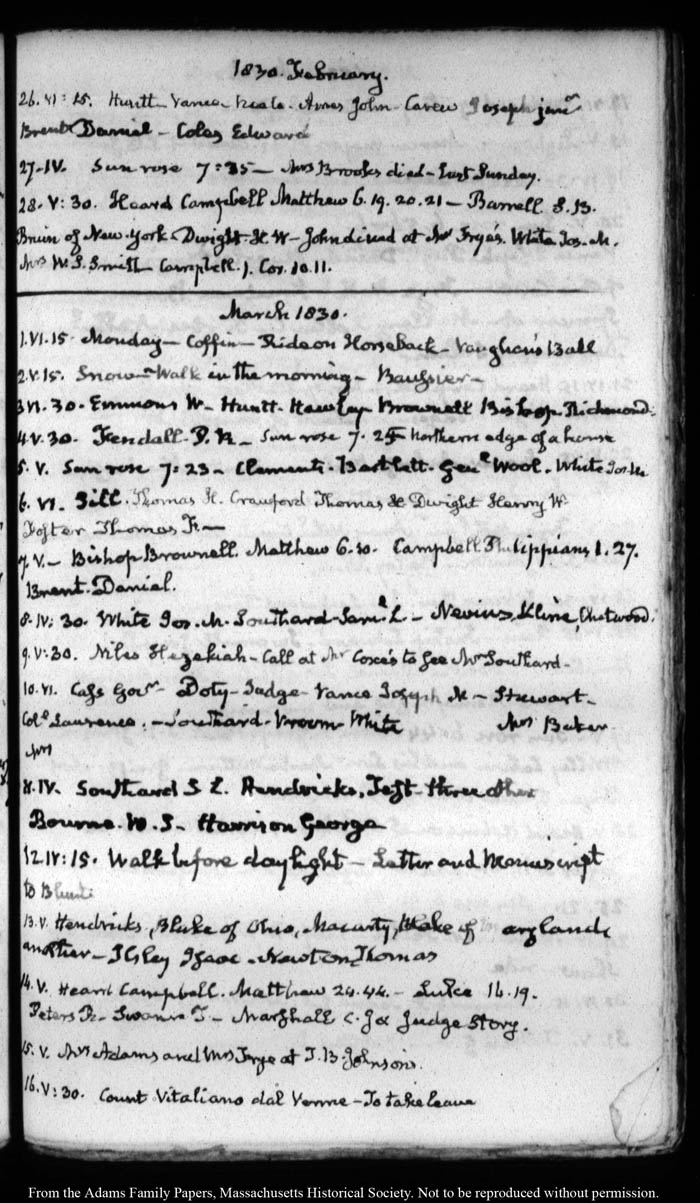 1830. February.
26. VI: 15. Huntt. Vance. Neale. Ames John - Carew Joseph junr.
Brent Daniel - Coles Edward
27. IV. Sun rose 7:35 - Mrs Brooks died - Last Sunday.
28. V: 30. Heard Campbell Matthew 6. 19. 20. 21 - Barrell. S. B.
Bruen of New-York. Dwight. H. W - John dined at Mr Frye's. White Jos. M.
Mrs W. S. Smith Campbell. 1. Cor. 10. 11.
March 1830.
1. VI. 15 Monday - Coffin - Ride on Horseback - Vaughan's Ball
2. V. 15. Snow - Walk in the morning - Baussier -
3. VI. 30. Emmons W - Huntt. Hawley Brownell Bishop. Richmond.
4. V. 30. Kendall. P. R - Sun rose 7. 25 Northern edge of a house
5. V. Sun rose 7:23 - Clements. Bartlett. Genl Wool. White Jos. M
6. VI. Sill. Thomas H. Crawford Thomas H Dwight Henry W
Foster Thomas F. -
7. V. - Bishop Brownell. Matthew 6. 10. Campbell. Philippians 1. 27.
Brent. Daniel.
8. IV: 30. White Jos. M. Southard Saml L - Nevius, Kline, Chetwood.
9. V: 30. Niles Hezekiah - Call at Mr Coxe's to see Mr Southard -
10. VI. Cass Govr - Doty - Judge - Vance Joseph M - Stewart -
Coll Laurence. - Southard - Vroom White Mrs Baker
Mrs
8. IV. Southard S L. Hendricks, Test - three other
Bourne. W. S - Harrison George
12. IV: 15. Walk before daylight - Letter and Manuscript
to Blunt.
13. V. Hendricks, Blake of Ohio, Macarty, Blake of aryland,
another - Ilsley Isaac - Newton, Thomas
14. V. Heard Campbell. Matthew 24. 44. - Luke 14. 19.
Peters R. Swann T - Marshall C. J & Judge Story.
15. V. Mrs Adams and Mrs Frye at J. B. Johnson's.
16. V: 30. Count Vitaliano dal Verme - To take leave
From the Adams Family Papers, Massachusetts Historical Society. Not to be reproduced without permission.